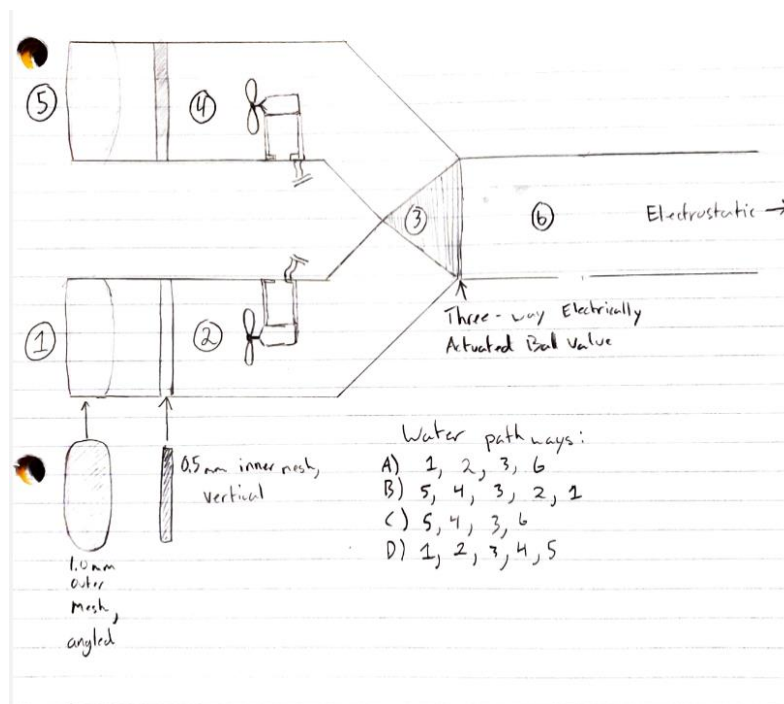 5
4
3
6
Electrostatic →
1
2
Three-way Electrically
Actuated Ball Valve
0.5mm inner mesh,
vertical
1.0mm
outer
mesh,
angled
Water pathways:
A) 1, 2, 3, 6
B) 5, 4, 3, 2, 1
C) 5, 4, 3, 6
D) 1, 2, 3, 4, 5